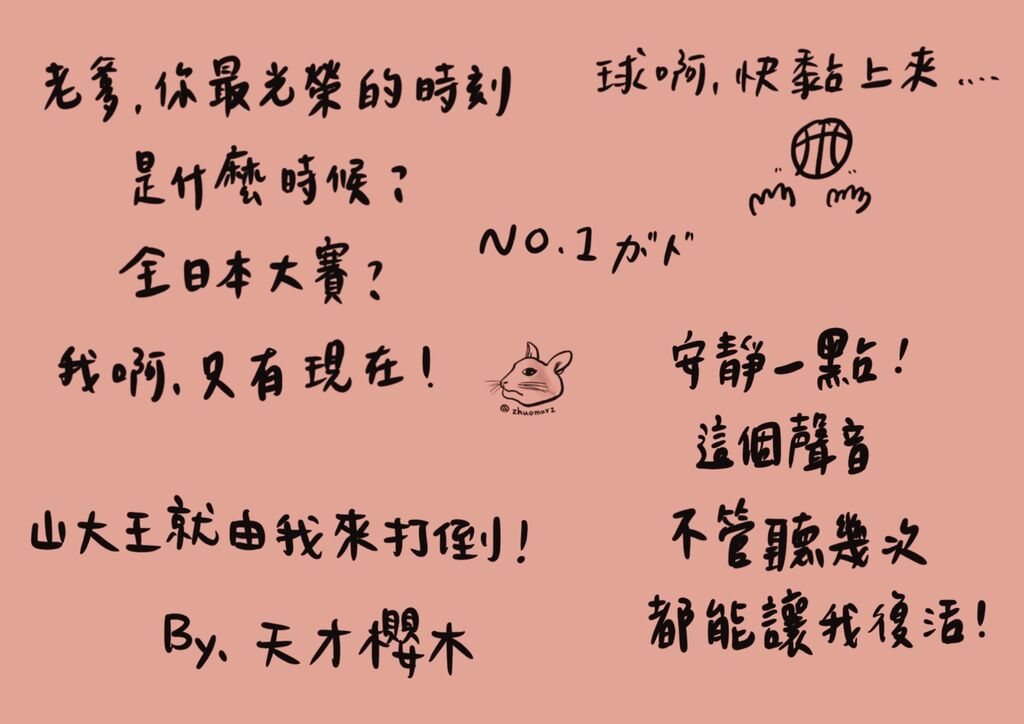 老爹,你最光榮的時刻
是什麼時候?
全日本大賽?
我啊,只有現在!
球啊,快黏上來....
NO.1ガド
@zhuomarz
安靜一點!
這個聲音
不管聽幾次
都能讓我復活!
山大王就由我來打倒!
By、天才櫻木